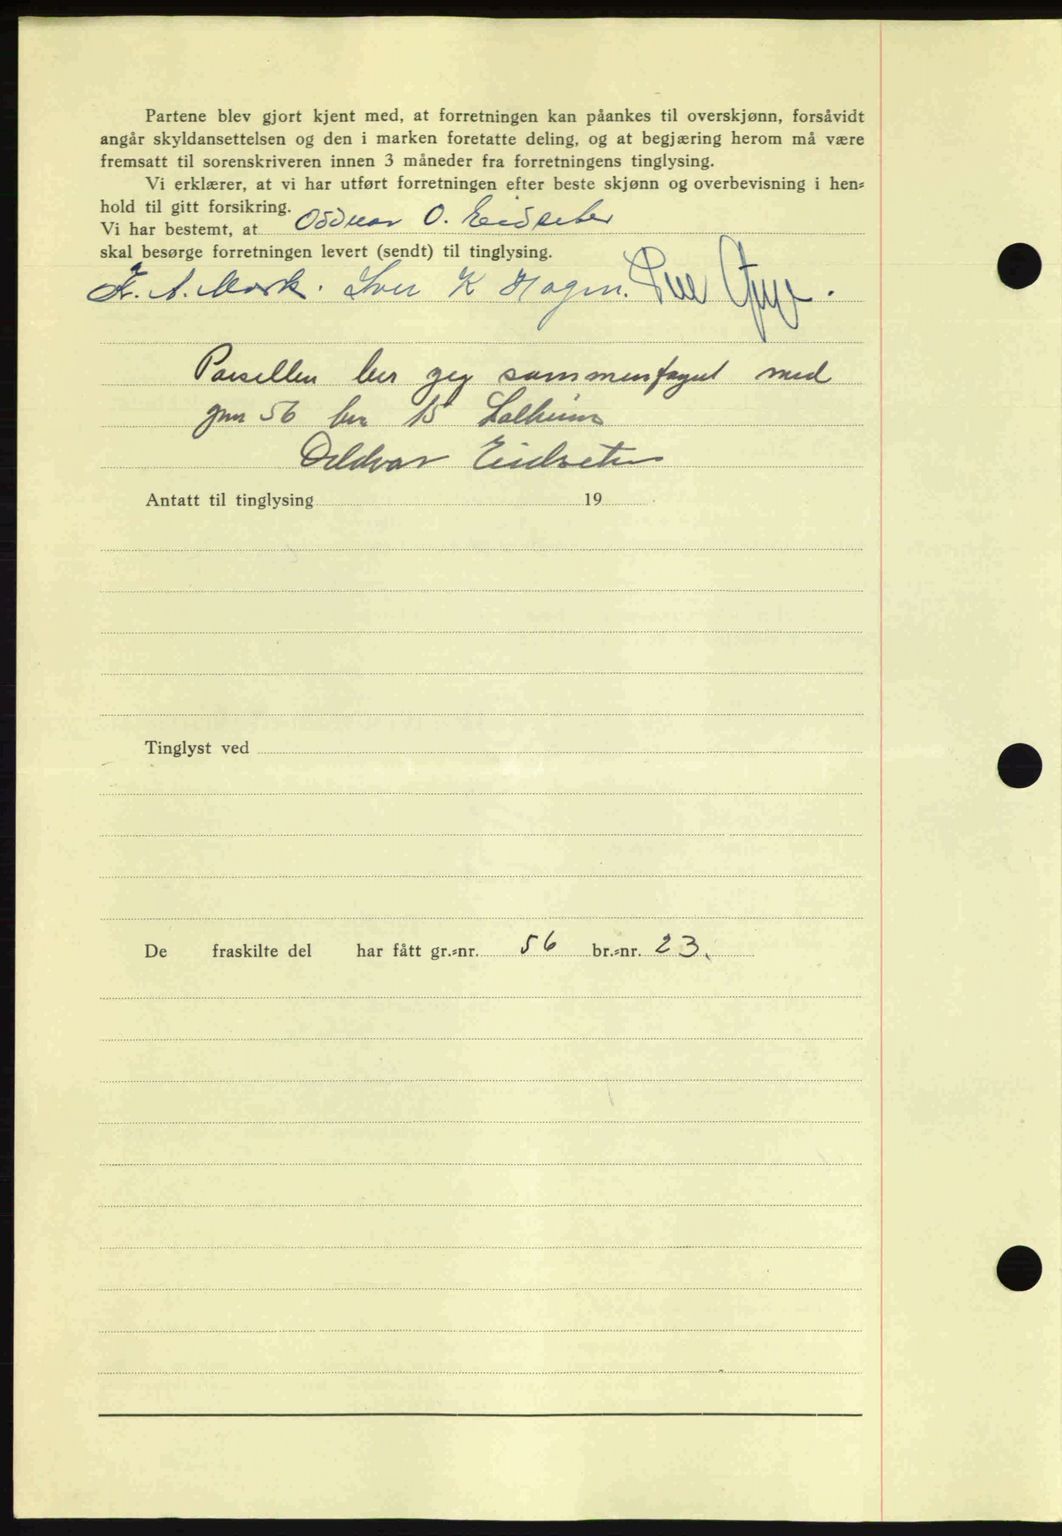 Partene blev gjort kjent med, at forretningen kan påankes til overskjønn, forsåvidt
angår skyldansettelsen og den i marken foretatte deling, og at begjæring herom må være
fremsatt til sorenskriveren innen 3 måneder fra forretningens tinglysing.
Vi erklærer, at vi har utført forretningen efter beste skjønn og overbevisning i hen=
hold til gitt forsikring.
Vi har bestemt, at Oddvar O. Eidseter
skal besørge forretningen levert (sendt) til tinglysing.
A. Mork. Iver K Hagen.
Parsellen ber jeg sammenføyet med
gnr 56 bnr 15 Solheim
Oddvar Eidseter
Antatt til tinglysing 19
Tinglyst ved
De fraskilte del har fått gr.=nr. 56 br.=nr. 23.